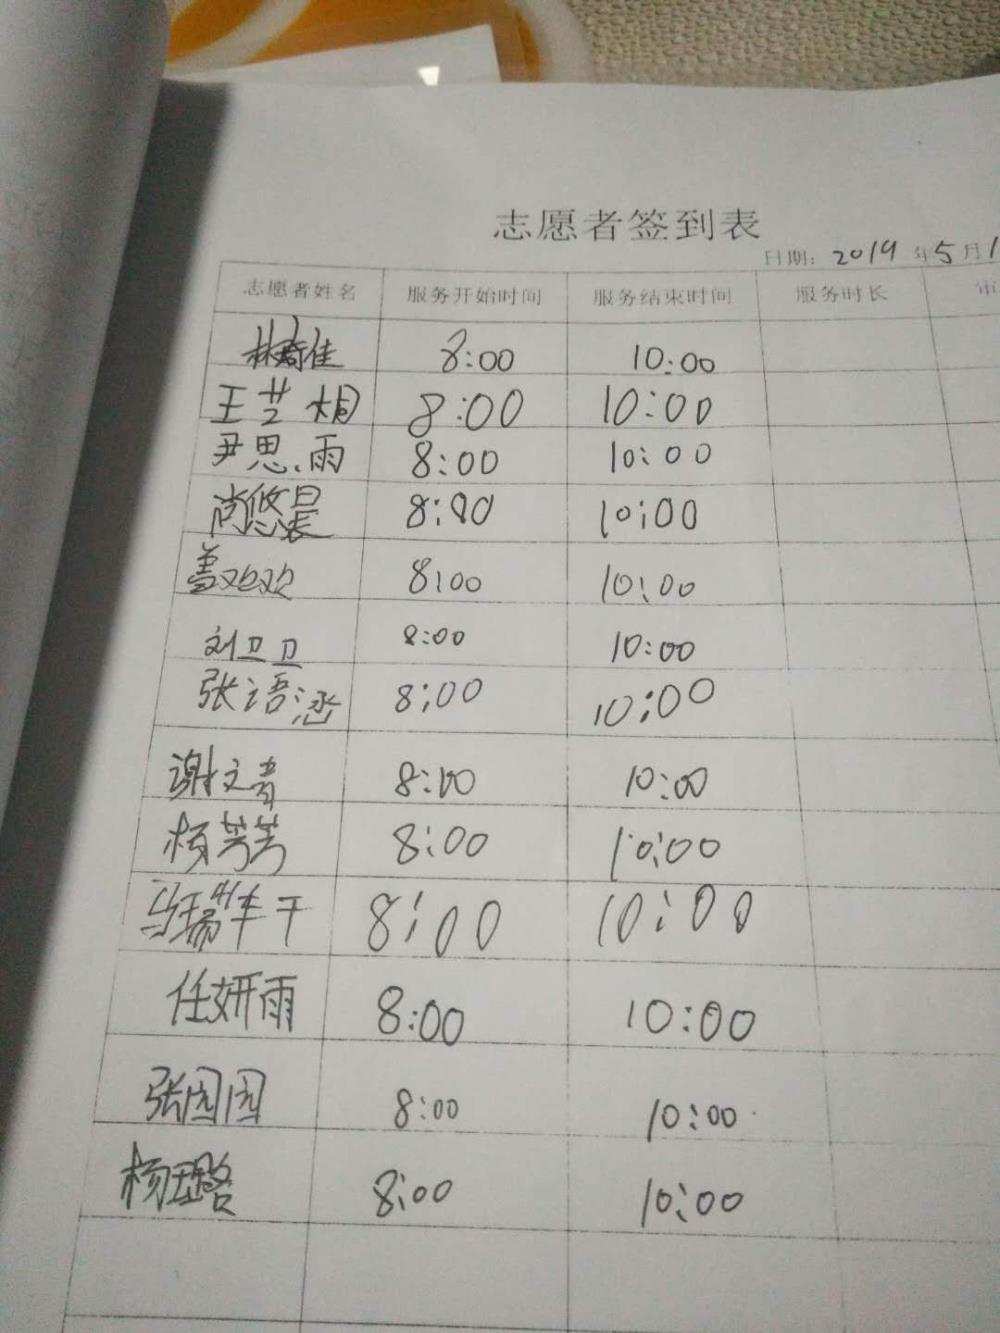 志愿者签到表
日期: 2019 年 5 月 1
志愿者姓名 服务开始时间 服务结束时间 服务时长 审
林奇佳 8:00 10:00
王芸桐 8:00 10:00
尹思雨 8:00 10:00
尚悠晨 8:00 10:00
8:00 10:00
刘卫卫 8:00 10:00
张语涵 8:00 10:00
谢文青 8:00 10:00
杨芳芳 8:00 10:00
8:00 10:00
任妍雨 8:00 10:00
张园园 8:00 10:00
杨璐 8:00 10:00